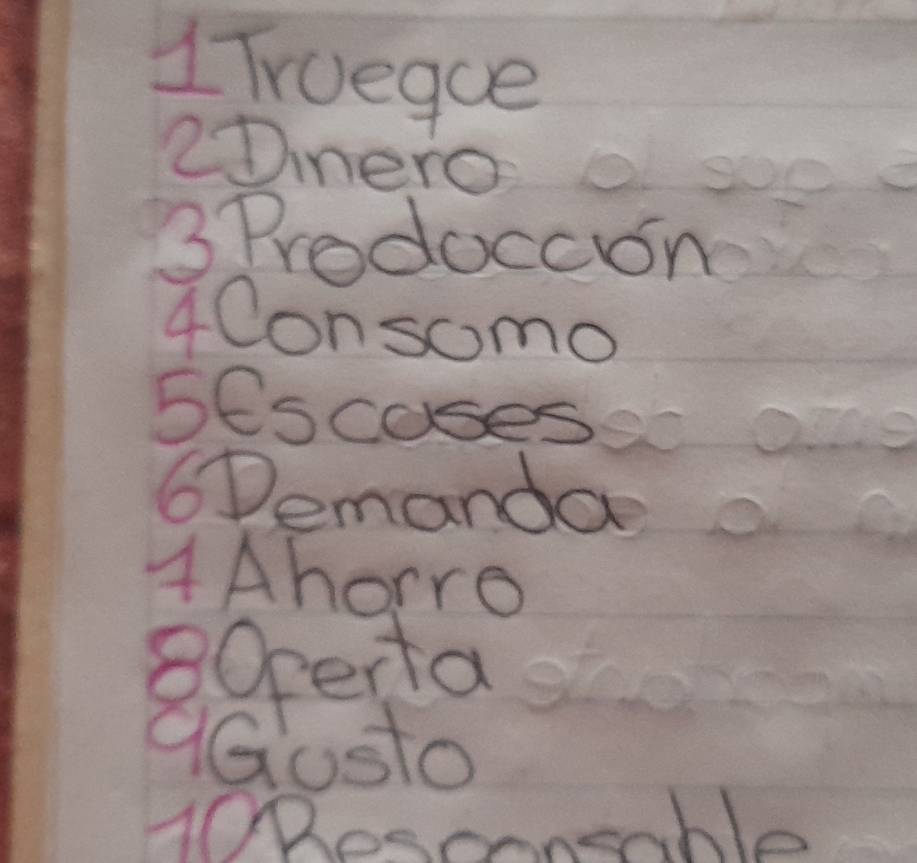 1 Trueque
2 Dinero
3 Producción
4 Consumo
5 Escases
6 Demanda
7 Ahorro
8 Oferta
9 Gusto
10 Responsable